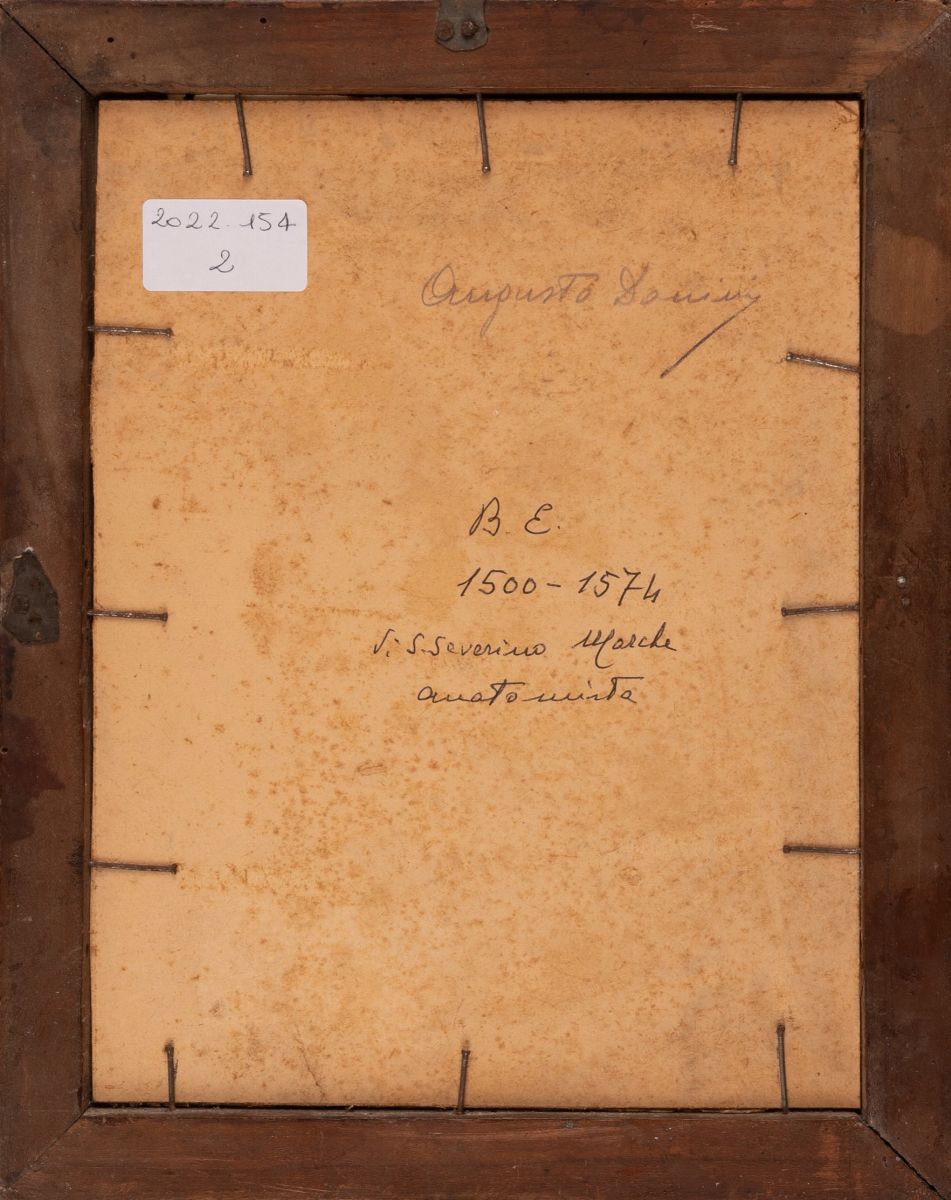 2022.154
2
Augusto
B. E.
1500-1574
di S. Severino Marche
anatomista